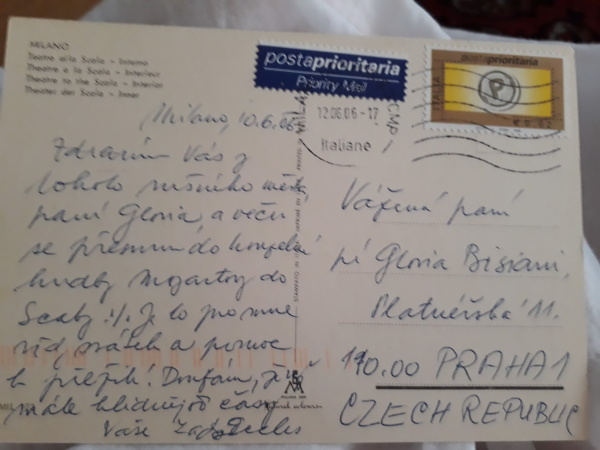 MILANO
Teatro alla Scala - Interno
Theatre a la Scala - Interieur
Theatre to the Scala - Interior
Theater der Scala - Inner
postaprioritaria
Priority Mail
postaprioritaria
ITALIA
P
€ 0,62
12.06.06-17
CMP
Italiane
Milano, 10.6.06
Zdravím Vás z
tohoto rušného města
paní Gloria a večer
se přesunu do
hudby Mozartovy do
Scaly :/. Je to pro mne
vždy svátek a pomoc
k přežití! Doufám, že
máte klidnější časy
Vaše
Vážená paní
pí Gloria Bisiani,
Platnéřská 11.
110.00 PRAHA 1
CZECH REPUBLIC